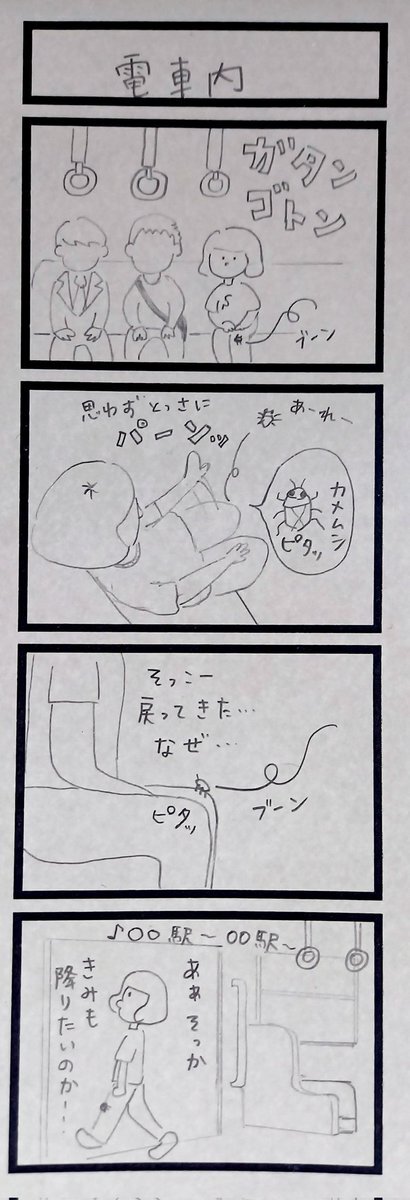 電車内
ガタン
ゴトン
ブーン
思わずとっさに
パーンッ
あーれー
カメムシ
ピタッ
そっこー
戻ってきた…
なぜ…
ピタッ
ブーン
♪〇〇駅〜〇〇駅〜
ああそっか
きみも
降りたいのか…